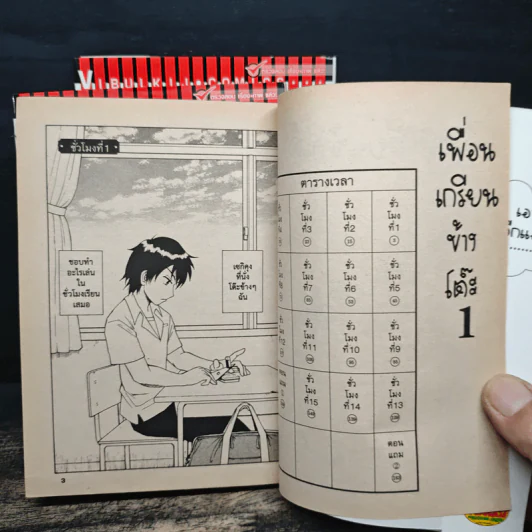 VIBULKIJ COMICS
ชั่วโมงที่ 1
ชอบทำ
อะไรเล่น
ใน
ชั่วโมงเรียน
เสมอ
เซกิคุง
ที่นั่ง
โต๊ะข้างๆ
ฉัน
3
ตารางเวลา
ชั่วโมงที่ 3
ชั่วโมงที่ 2
ชั่วโมงที่ 1
3
ชั่วโมงที่ 7
ชั่วโมงที่ 6
ชั่วโมงที่ 5
ชั่วโมงที่ 11
ชั่วโมงที่ 10
ชั่วโมงที่ 9
ชั่วโมงที่ 15
ชั่วโมงที่ 14
ชั่วโมงที่ 13
ตอนแถม
เพื่อน
เกรียน
ข้าง
โต๊ะ
1